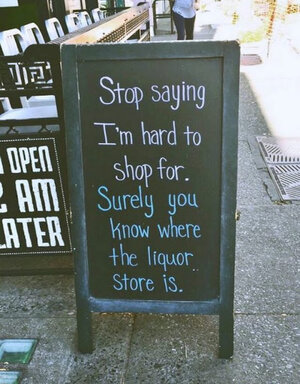 Stop saying
I'm hard to
shop for.
Surely you
know where
the liquor
store is.
OPEN
AM
LATER